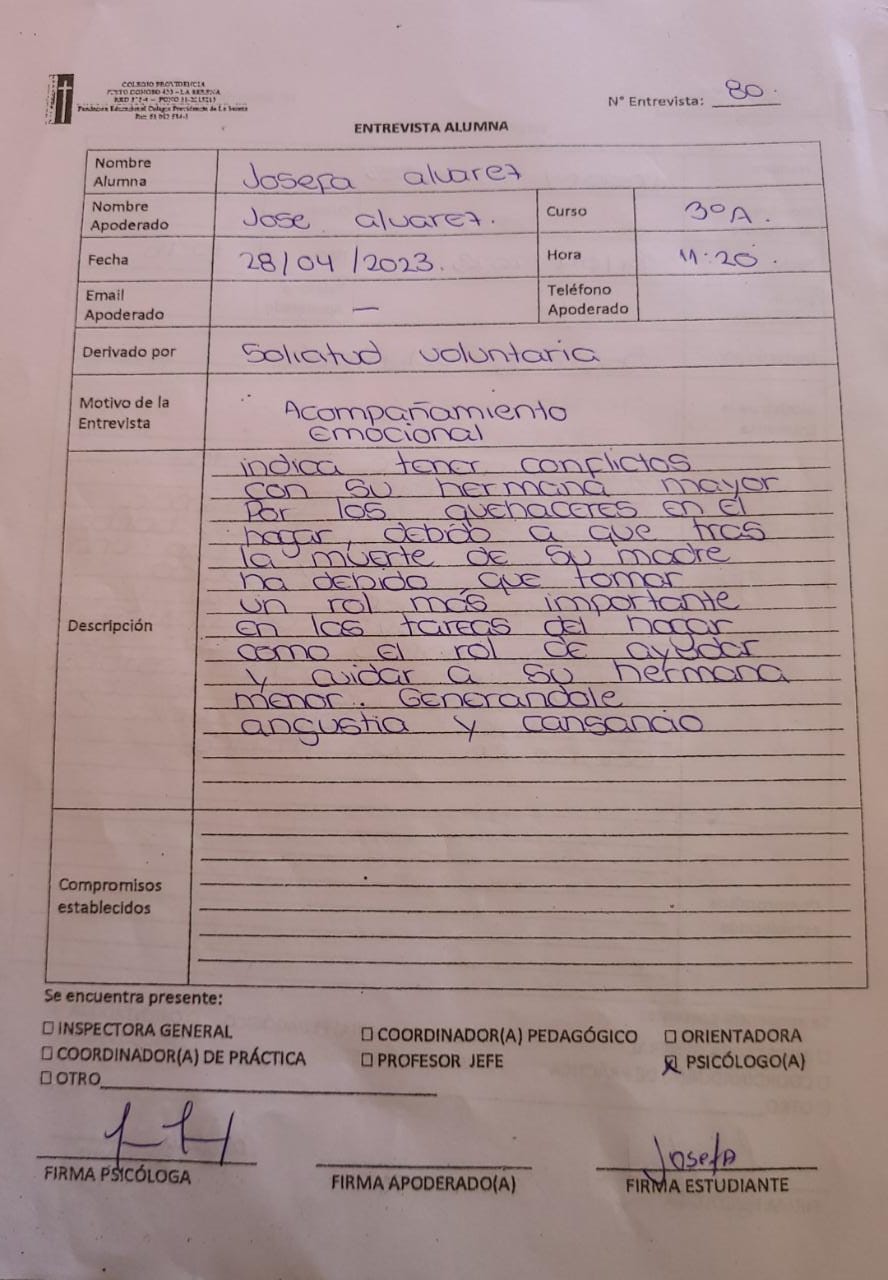 COLEGIO PROVIDENCIA
Fundación Educacional Colegio Providencia de La Serena
N° Entrevista: 80.
ENTREVISTA ALUMNA
Nombre Alumna Josefa alvarez
Nombre Apoderado Jose alvarez. Curso 3°A.
Fecha 28/04/2023. Hora 11:20.
Email Apoderado — Teléfono Apoderado
Derivado por Solicitud voluntaria
Motivo de la Entrevista Acompañamiento
Emocional
Descripción
indica tener conflictos
con su hermana mayor
Por los quehaceres en el
hogar, debido a que tras
la muerte de su madre
ha debido que tomar
un rol más importante
en las tareas del hogar
como el rol de ayudar
y cuidar a su hermana
menor. Generandole
angustia y cansancio
Compromisos establecidos
Se encuentra presente:
☐ INSPECTORA GENERAL ☐ COORDINADOR(A) PEDAGÓGICO ☐ ORIENTADORA
☐ COORDINADOR(A) DE PRÁCTICA ☐ PROFESOR JEFE ☒ PSICÓLOGO(A)
☐ OTRO
Josefa
FIRMA PSICÓLOGA FIRMA APODERADO(A) FIRMA ESTUDIANTE